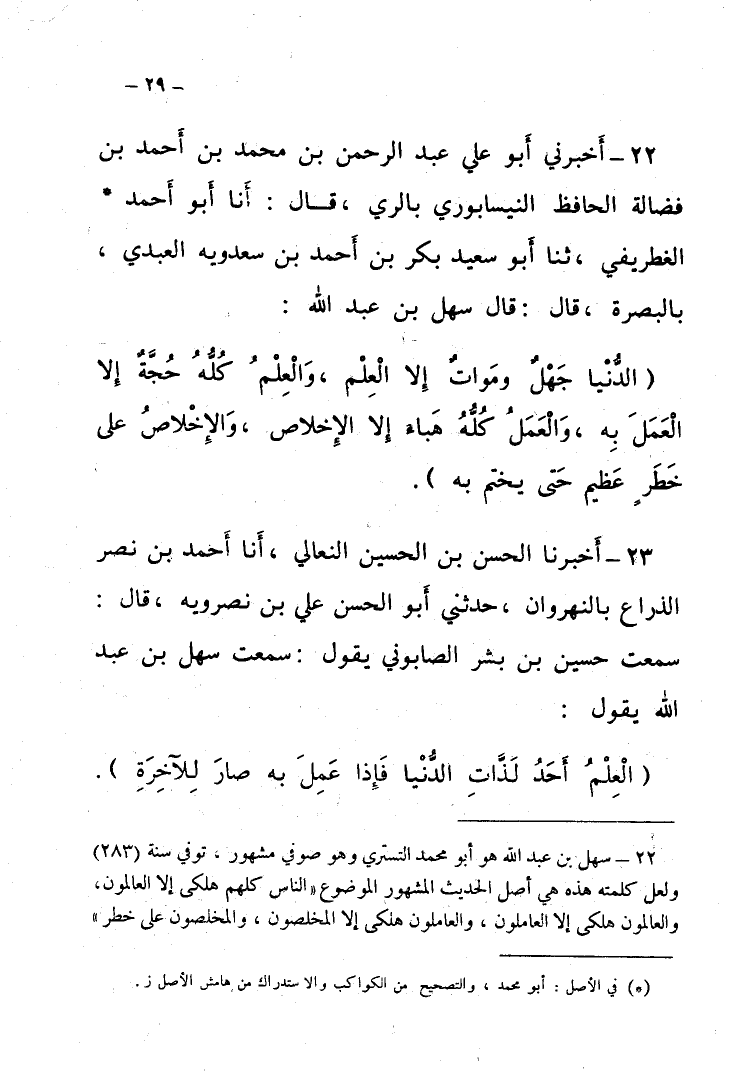 – ٢٩ –
٢٢ – أَخبرني أَبو علي عبد الرحمن بن محمد بن أَحمد بن
فضالة الحافظ النيسابوري بالري ، قـال : أَنا أَبو أَحمد *
الغطريفي ، ثنا أَبو سعيد بكر بن أَحمد بن سعدويه العبدي ،
بالبصرة ، قال : قال سهل بن عبد الله :
( الدُّنْيا جَهْلٌ ومَواتٌ إِلا الْعِلْم ، وَالْعِلْمُ كُلُّهُ حُجَّةٌ إِلا
الْعَمَلَ بِه ، وَالْعَمَلُ كُلُّهُ هَباء إِلا الإِخلاص ، وَالإِخْلاصُ على
خَطَرٍ عَظيم حَتى يختم به ) .
٢٣ – أَخبرنا الحسن بن الحسين النعالي ، أَنا أَحمد بن نصر
الذراع بالنهروان ، حدثني أَبو الحسن علي بن نصرويه ، قال :
سمعت حسين بن بشر الصابوني يقول : سمعت سهل بن عبد
الله يقول :
( الْعِلْمُ أَحَدُ لَذَّاتِ الدُّنْيا فَإِذا عَمِلَ به صارَ لِلآخِرَةِ ) .
٢٢ – سهل بن عبد الله هو أبو محمد التستري وهو صوفي مشهور ، توفي سنة (٢٨٣)
ولعل كلمته هذه هي أصل الحديث المشهور الموضوع «الناس كلهم هلكى إلا العالمون،
والعالمون هلكى إلا العاملون ، والعاملون هلكى إلا المخلصون ، والمخلصون على خطر »
(*) في الأصل : أبو محمد ، والتصحيح من الكواكب والاستدراك من هامش الأصل ز .